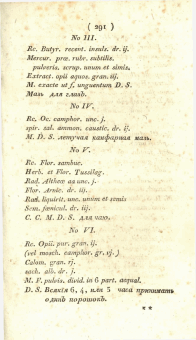 ( 291 )
No III.
Rc. Butyr. recent. insuls. dr. ij.
Mercur. præ. rubr. subtilis.
pulveris. scrup. unum et simis.
Extract. opii aquos. gran. iij.
M. exacte ut f. unguentum D. S.
Мазь для глазъ.
No IV.
Rc. Oc. camphor. unc. j.
spir. sal. ammon. caustic. dr. ij.
M. D. S. летучая камфарная мазь.
No V.
Rc. Flor. sambuc.
Herb. et Flor. Tussilag.
Rad. Altheæ aa unc. j.
Flor. Arnic. dr. iij.
Rad. liquirit. unc. unam et semis
Sem. fœnicul. dr. iij.
C. C. M. D. S. для чаю.
No VI.
Rc. Opii. pur. gran. ij.
(vel mosch. camphor. gr. vj.)
Calom. gran. vj.
sach. alb. dr. j.
M. F. pulvis, divid. in 6 part. æqual.
D. S. Всякія 6, 4, или 3 часа принимать
одинъ порошокъ.
* *